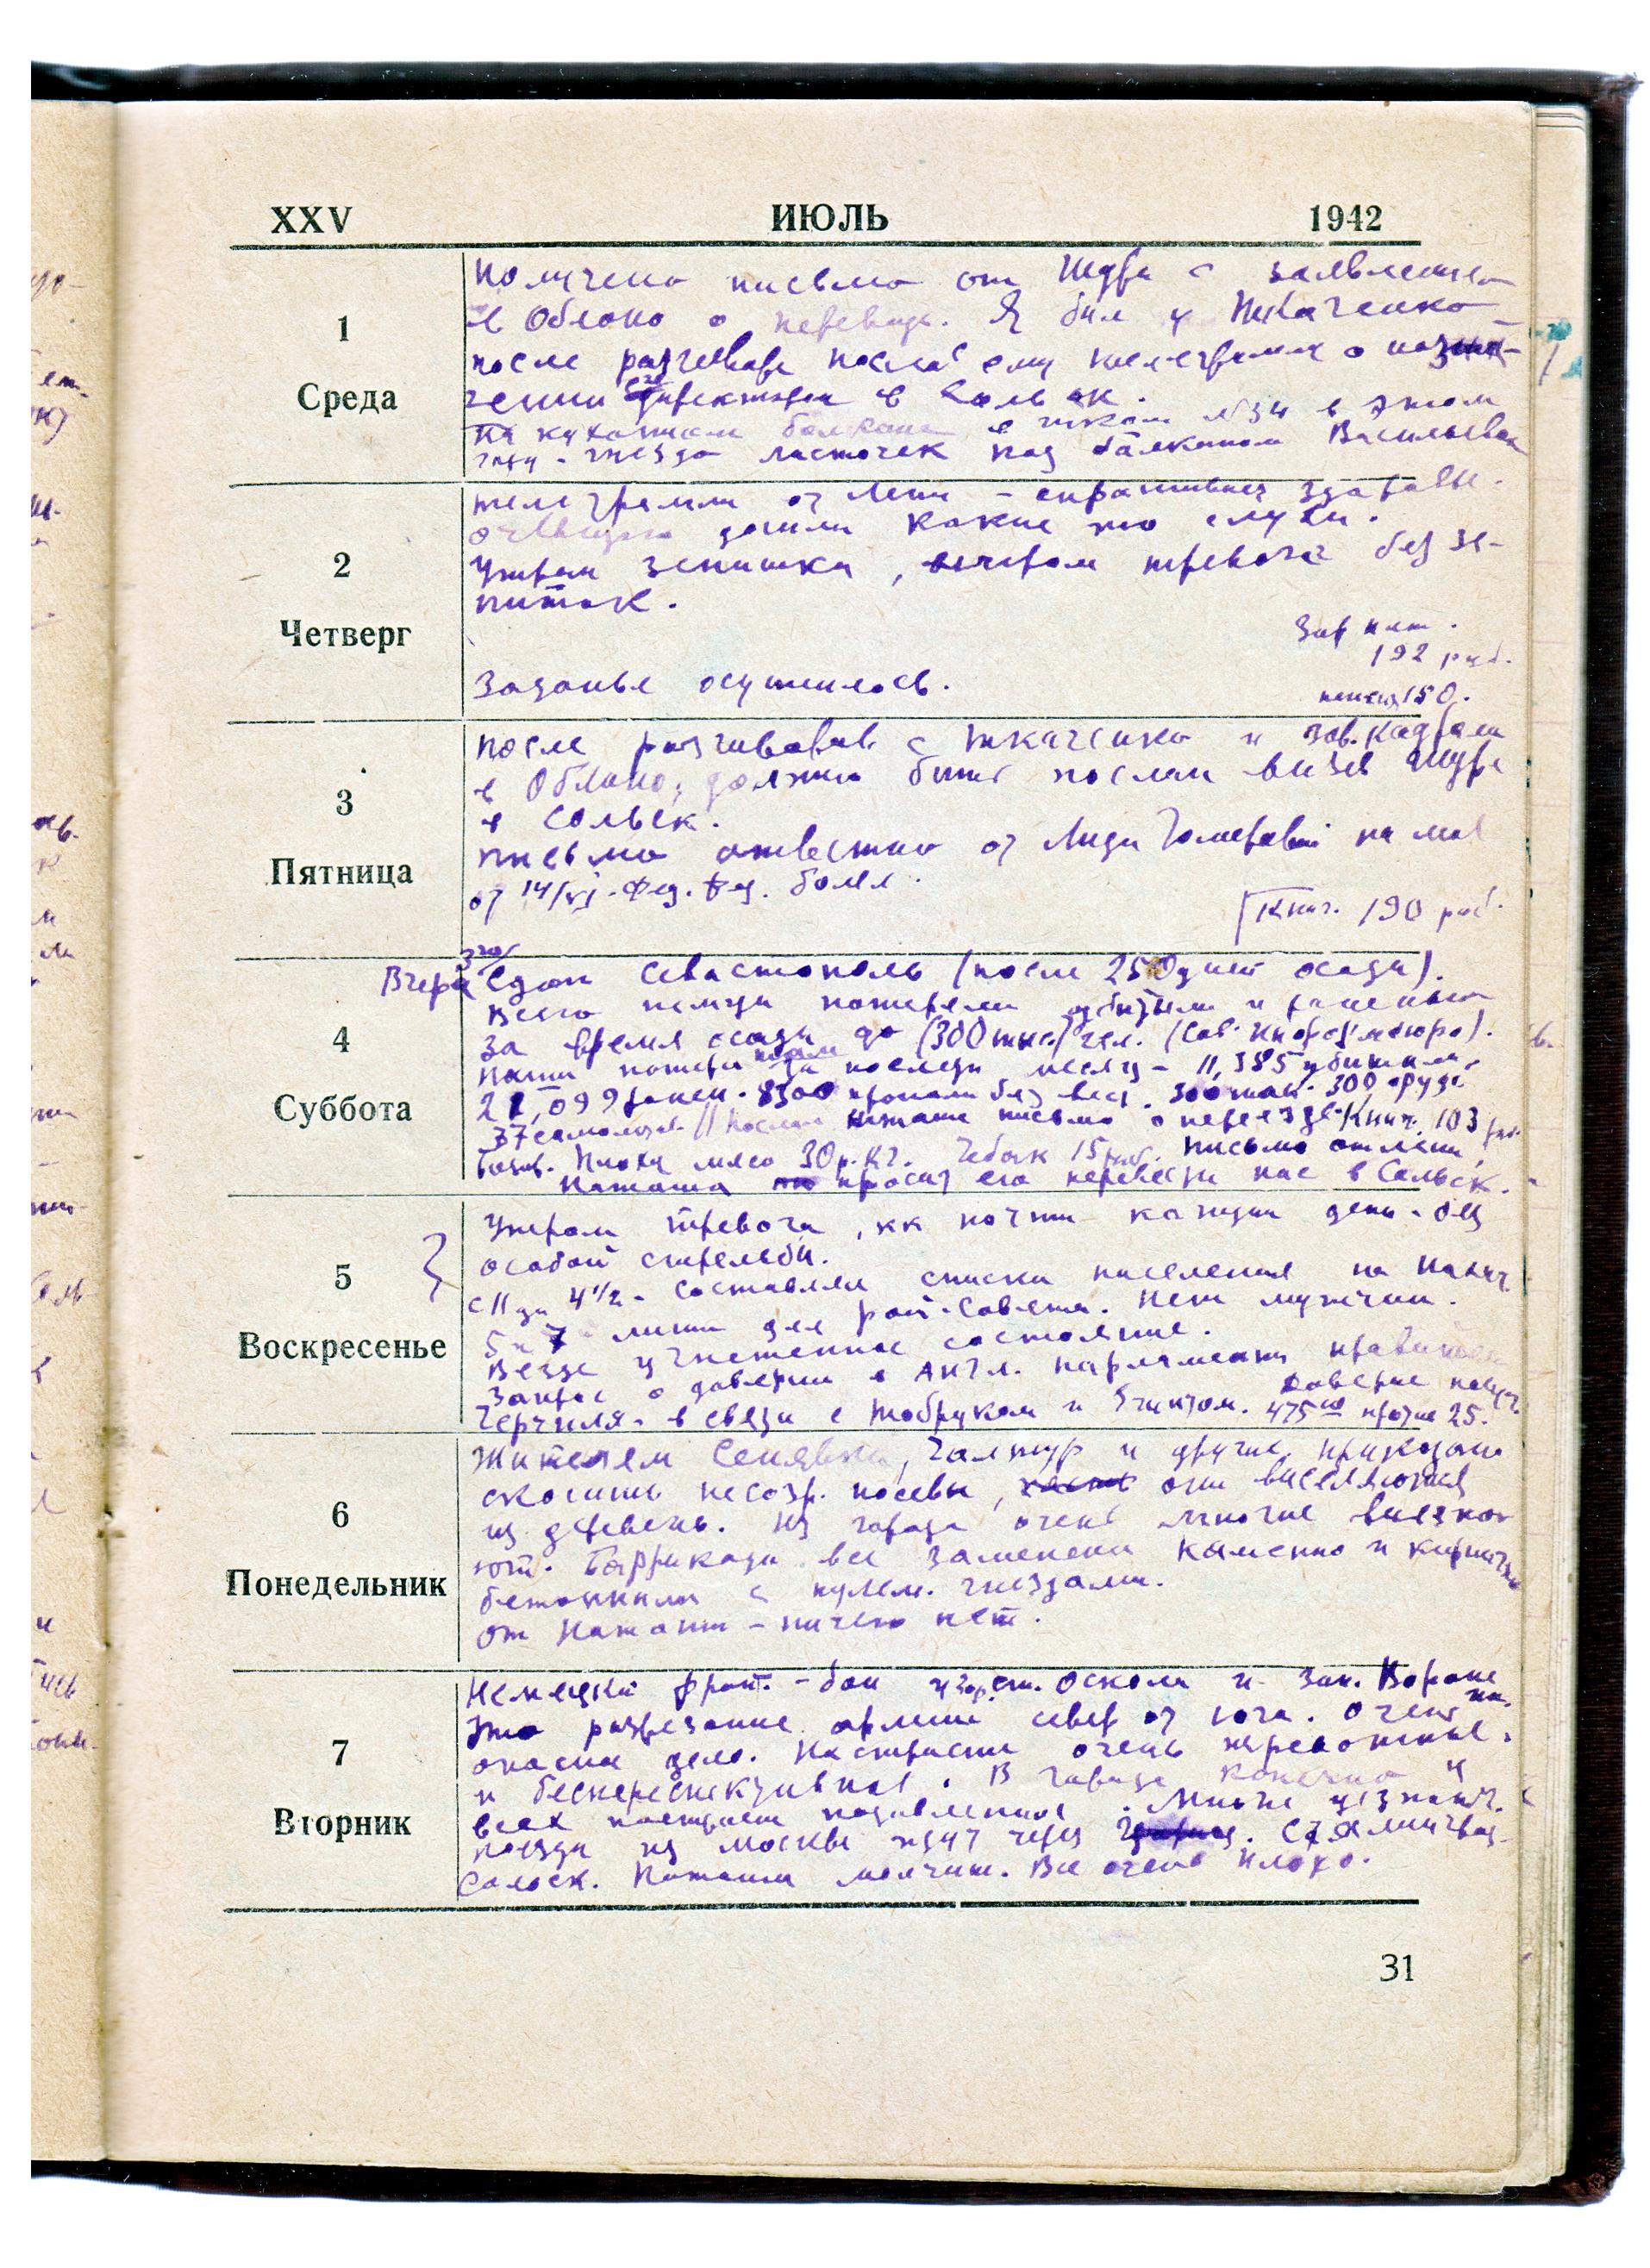 XXV ИЮЛЬ 1942
1
Среда
Получено письмо от Шуры с заявлением
в Облоно о переводе. Я был у Ткаченко
после разговора послал ему телеграмму о назна-
чении его директором в Сольск.
На кухонном балконе в школе №34 в этом
году - гнездо ласточек над балконом Васильевой
2
Четверг
телеграмма от Лени - спрашивает здоровье.
очевидно дошли какие то слухи.
Утром зенитки, вечером тревога без зе-
ниток.
Зар плат.
192 руб.
Заданье осуществилось.
пенсия 150.
3
Пятница
после разговоров с Ткаченко и зав. кадрами
в Облоно, должен быть послан вызов Шуре
в Сольск.
письмо ответное от Лиды на мое
от 14/VI. Фед. Фед. болел.
Книг. 190 руб.
4
Суббота
Вчера 3го/ Сдан Севастополь (после 250 дней осады).
Всего немцы потеряли убитыми и ранеными
за время осады до (300 тыс.) чел. (Сов. Информбюро).
Наши потери там за последн месяц - 11,385 убитыми,
21,099 ранен. 8300 пропали без вест. 300 тан. 300 оруд.
37 самолетов. // Послал Наташе письмо о переезде. Книг. 103 руб.
Базар. Плохо мясо 30 р. кг. Чебак 15 руб. Письмо от Лени,
Наташа просит его перевезти нас в Сальск.
5
Воскресенье
Утром тревога, кк почти каждый день - без
особой стрельбы.
с 11 до 4½ - составляли списки населения на
5 и 7 для рай. Совета. Нет мужчин.
Везде угнетенное состояние.
Запрос о доверии в Англ. парламенте правительству
Черчиля - в связи с Тобруком и Египтом. Доверие получ.
475ю против 25.
6
Понедельник
Жителям Синявки, и другие, приказано
скосить несозр. посевы, они выселяются
из деревень. Из города очень многие выезжа-
ют. Баррикады все заменены каменно и кирпично
бетонными с пулем. гнездами.
от Наташи - ничего нет.
7
Вторник
Немецкий фронт. - бои у гор. ст. Оскола и зап. Вороне
жа.
Это разрезание армии север от юга. Очень
опасно дело. Настроение очень тревожное.
и бесперспективное. В городе конечно у
всех настроен подавленное. Многие уезжают.
поезда из Москвы идут через Сталинград -
Сальск. Наташа молчит. Все очень плохо.
31